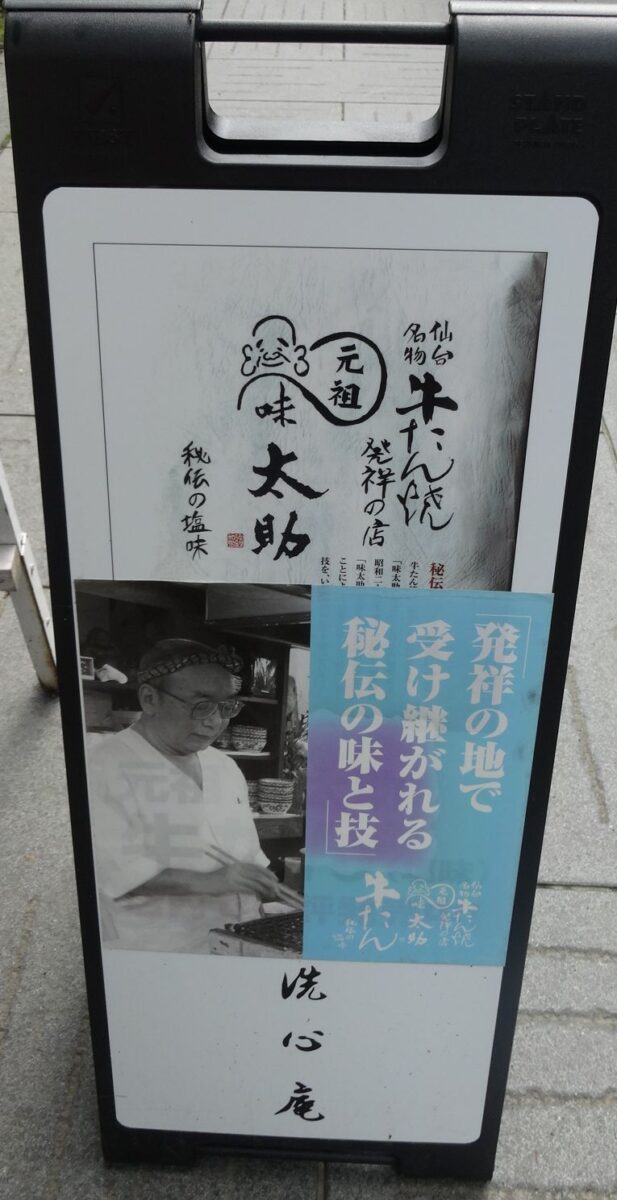 STAND
PLATE
仙台
名物
牛たん焼
発祥の店
元祖
味
太助
秘伝の塩味
秘伝
牛たん
「味太助
昭和二
「味太助
ことによ
技を、い
「発祥の地で
受け継がれる
秘伝の味と技」
仙台
名物
牛たん焼
発祥の店
元祖
味
太助
牛たん
洗心庵